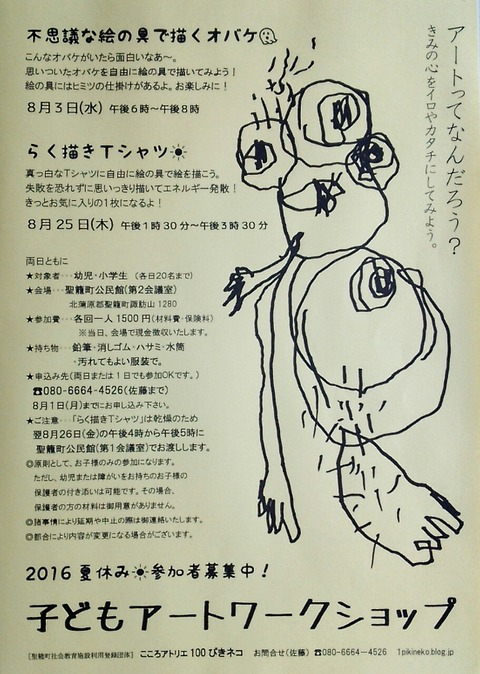 アートってなんだろう？
きみの心をイロやカタチにしてみよう。
不思議な絵の具で描くオバケ
こんなオバケがいたら面白いなあ〜。
思いついたオバケを自由に絵の具で描いてみよう！
絵の具にはヒミツの仕掛けがあるよ。お楽しみに！
8月3日(水) 午後6時〜午後8時
らく描きTシャツ☀
真っ白なTシャツに自由に絵の具で絵を描こう。
失敗を恐れずに思いっきり描いてエネルギー発散！
きっとお気に入りの1枚になるよ！
8月25日(木) 午後1時30分〜午後3時30分
両日ともに
★対象者･･･幼児・小学生 (各日20名まで)
★会場･･･聖籠町公民館(第2会議室)
北蒲原郡聖籠町諏訪山1280
★参加費･･･各回一人1500円(材料費・保険料)
※当日、会場で現金徴収いたします。
★持ち物･･･鉛筆・消しゴム・ハサミ・水筒
・汚れてもよい服装で。
★申込み先(両日または1日でも参加OKです。)
☎080-6664-4526(佐藤まで)
8月1日(月)までにお申し込み下さい。
★ご注意･･･「らく描きTシャツ」は乾燥のため
翌8月26日(金)の午後4時から午後5時に
聖籠町公民館(第1会議室)でお渡しします。
◎原則として、お子様のみの参加になります。
ただし、幼児または障がいをお持ちのお子様の
保護者の付き添いは可能です。その場合、
保護者の方の材料は御用意がありません。
◎諸事情により延期や中止の際は御連絡いたします。
◎都合により内容が変更になる場合がございます。
2016 夏休み☀参加者募集中！
子どもアートワークショップ
[聖籠町社会教育施設利用登録団体] こころアトリエ 100ぴきネコ お問合せ(佐藤) ☎080-6664-4526 1pikineko.blog.jp